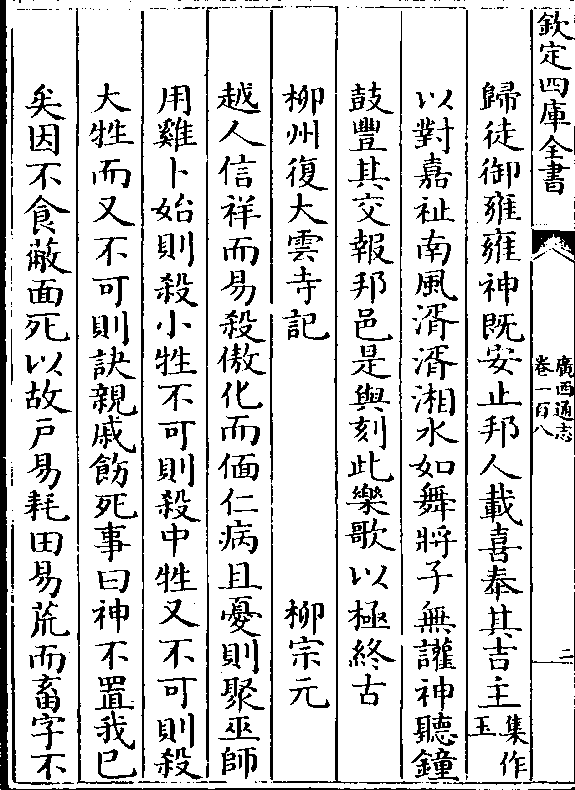 欽定四庫全書
廣西通志
卷一百八
二
歸徒御雍雍神既安止邦人載喜奉其吉主集作玉
以對嘉祉南風湑湑湘水如舞將子無讙神聽鐘
鼓豐其交報邦邑是與刻此樂歌以極終古
柳州復大雲寺記 柳宗元
越人信祥而易殺傲化而偭仁病且憂則聚巫師
用雞卜始則殺小牲不可則殺中牲又不可則殺
大牲而又不可則訣親戚飭死事曰神不置我已
矣因不食蔽面死以故戸易耗田易荒而畜字不